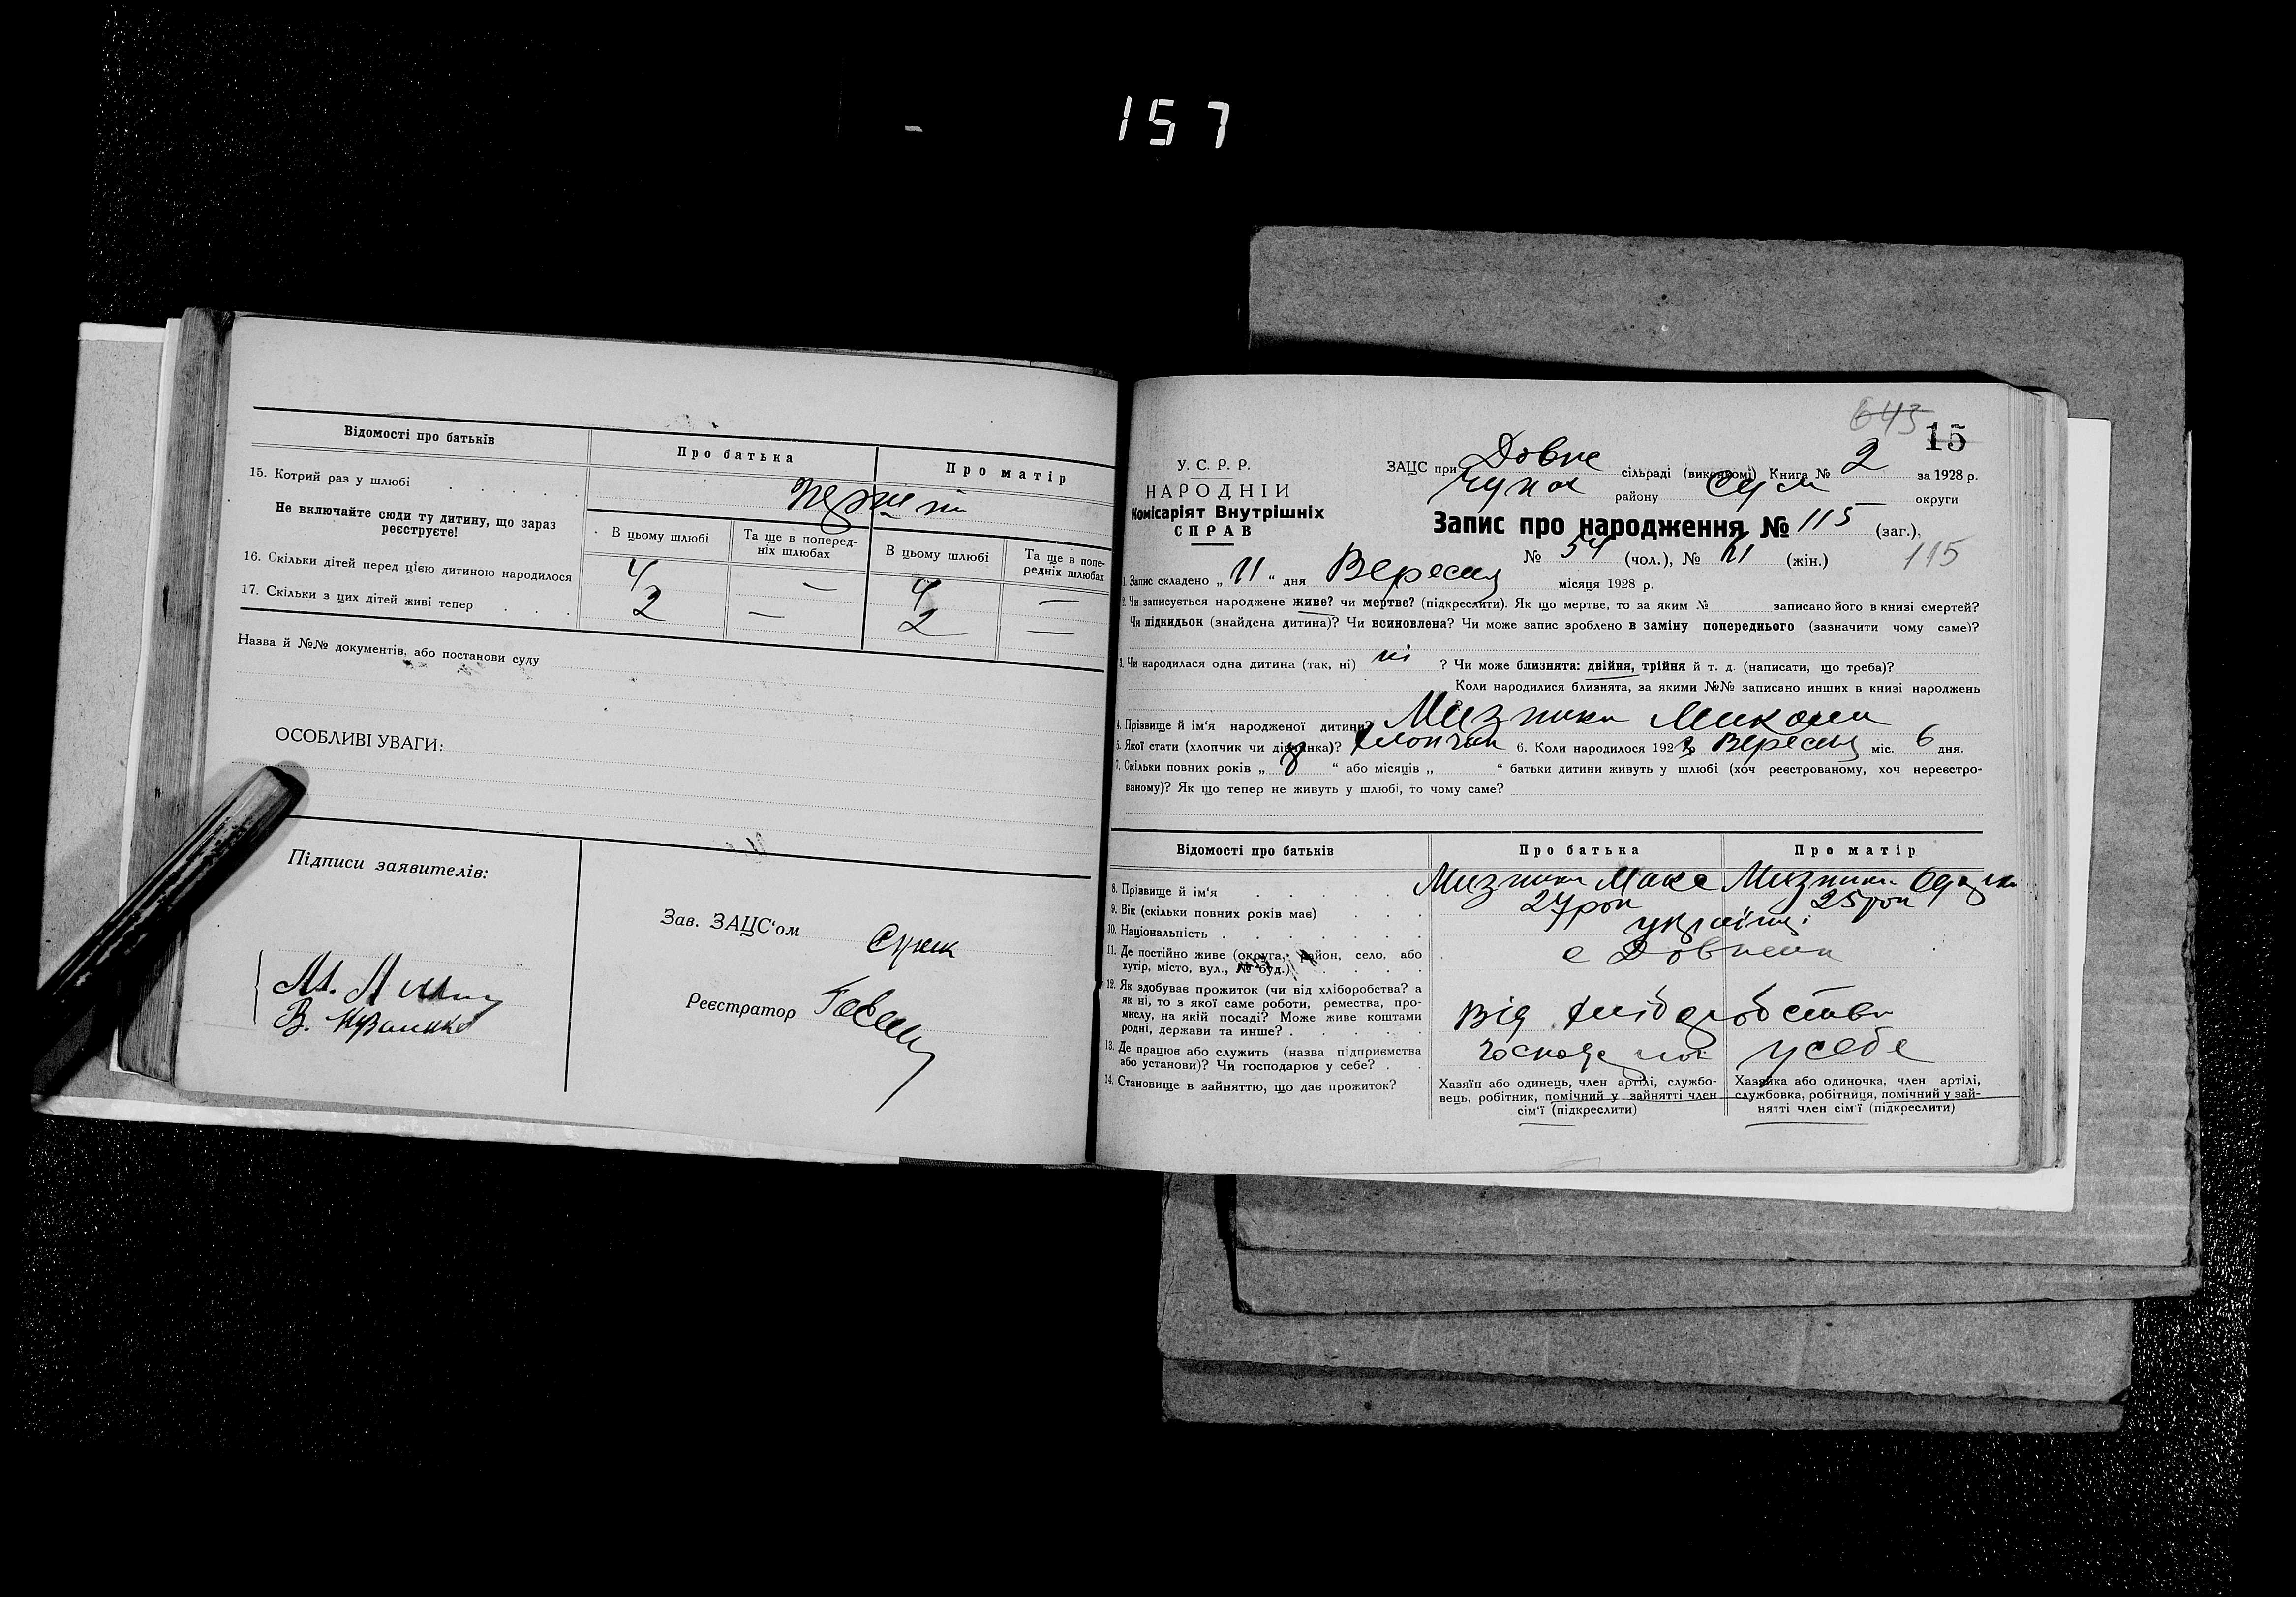 157
Відомості про батьків
Про батька
Про матір
15. Котрий раз у шлюбі
Не включайте сюди ту дитину, що зараз
реєструєте!
В цьому шлюбі
Та ще в поперед-
ніх шлюбах
В цьому шлюбі
Та ще в попе-
редніх шлюбах
16. Скільки дітей перед цією дитиною народилося
4 — 4 —
17. Скільки з цих дітей живі тепер
2 — 2 —
Назва й №№ документів, або постанови суду
ОСОБЛИВІ УВАГИ:
Підписи заявителів:
Зав. ЗАЦС'ом
Реєстратор
В.
643
15
У. С. Р. Р.
НАРОДНІЙ
Комісаріят Внутрішніх
СПРАВ
ЗАЦС при Довже сільраді (виконкомі) Книга № 2 за 1928 р.
району Сум округи
Запис про народження № 115 (заг.),
№ 54 (чол.), № 61 (жін.)
115
1. Запис складено „ 11 “ дня Вересня місяця 1928 р.
2. Чи записується народжене живе? чи мертве? (підкреслити). Як що мертве, то за яким № записано його в книзі смертей?
Чи підкидьок (знайдена дитина)? Чи всиновлена? Чи може запис зроблено в заміну попереднього (зазначити чому саме)?
3. Чи народилася одна дитина (так, ні) ні ? Чи може близнята: двійня, трійня й т. д. (написати, що треба)?
Коли народилися близнята, за якими №№ записано инших в книзі народжень
4. Прізвище й ім'я народженої дитини? Микола
5. Якої стати (хлопчик чи дівчинка)? хлопчик 6. Коли народилося 1928 Вересня міс. 6 дня.
7. Скільки повних років „ 8 “ або місяців „ “ батьки дитини живуть у шлюбі (хоч реєстрованому, хоч нереєстро-
ваному)? Як що тепер не живуть у шлюбі, то чому саме?
Відомості про батьків
Про батька
Про матір
8. Прізвище й ім'я
9. Вік (скільки повних років має)
27 рок
25 рок
10. Національність
українці
11. Де постійно живе (округа, район, село, або
хутір, місто, вул., № буд.)
с
12. Як здобуває прожиток (чи від хліборобства? а
як ні, то з якої саме роботи, ремества, про-
мислу, на якій посаді? Може живе коштами
родні, держави та инше?
Від хліборобства
13. Де працює або служить (назва підприємства
або установи)? Чи господарює у себе?
у себе
14. Становище в зайняттю, що дає прожиток?
Хазяїн або одинець, член артілі, службо-
вець, робітник, помічний у зайнятті член
сім'ї (підкреслити)
Хазяйка або одиночка, член артілі,
службовка, робітниця, помічний у зай-
нятті член сім'ї (підкреслити)